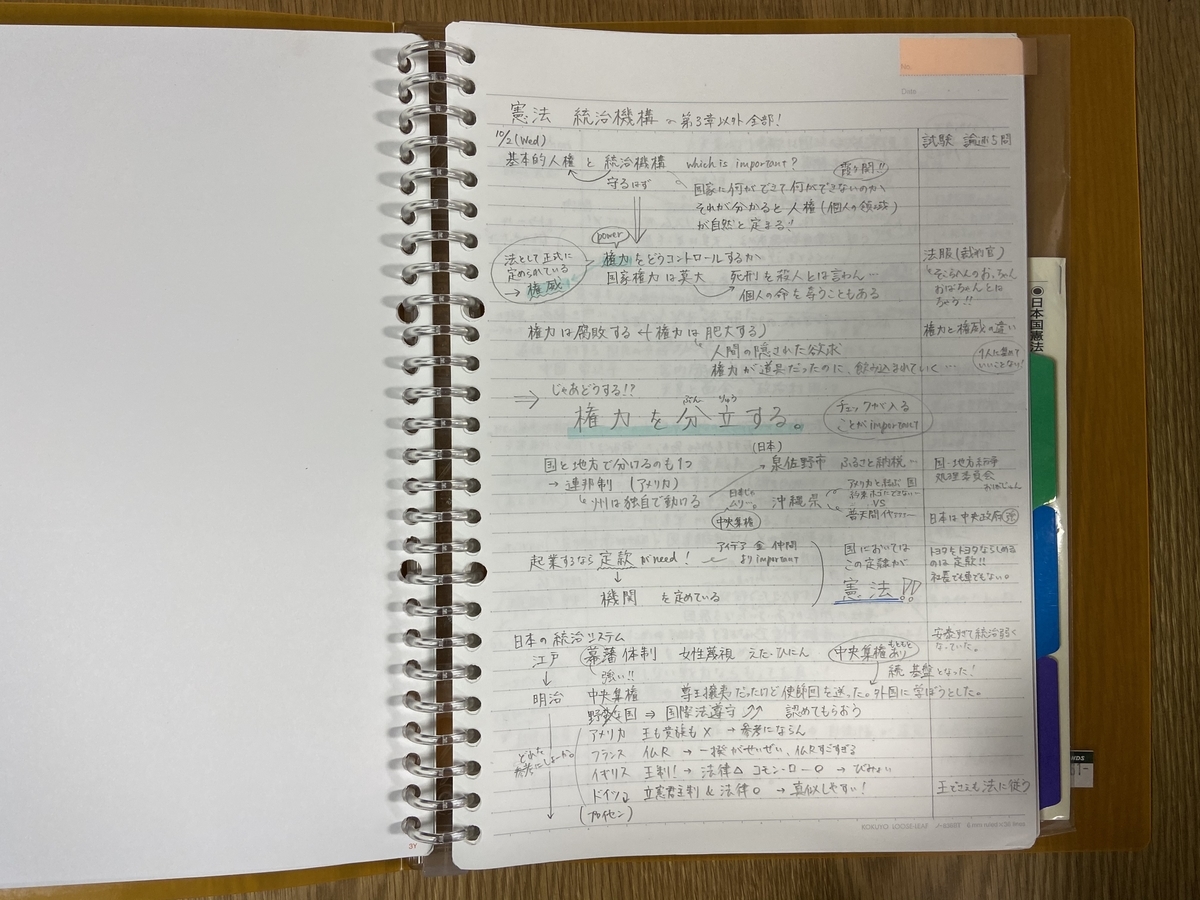 No.
Date
憲法 統治機構 → 第3章以外全部!
10/2(Wed)
試験 論述5問
基本的人権 と 統治機構 which is important?
霞ヶ関!!
守るはず
国家に何ができて何ができないのか
それが分かると人権(個人の領域)
が自然と定まる!
power
権力をどうコントロールするか
法として正式に
定められている
→ 権威
国家権力は莫大 死刑を殺人とは言わん…
個人の命を奪うこともある
法服(裁判官)
そこらへんのおっちゃん
おばちゃんとは
ちゃう!!
権力は腐敗する ← 権力は肥大する)
権力と権威の違い
人間の隠された欲求
権力が道具だったのに、飲み込まれていく…
1人に集めて
いいことない!
⇒ じゃあどうする!?
ぶん りゅう
権力を分立する。
チェックが入る
ことがimportant
(日本)
国と地方で分けるのも1つ
→ 連邦制 (アメリカ)
州は独自で動ける
泉佐野市 ふるさと納税…
日本じゃ
ムリー。
中央集権
沖縄県
アメリカと結ぶ 国
約束ホゴにできない…
VS
普天間
国-地方紛争
処理委員会
日本は中央政府強
起業するなら定款がneed!
アイデア 金 仲間
よりimportant
↓
機関 を定めている
国においては
この定款が
憲法!!
トヨタをトヨタならしめる
のは定款!!
社長でも車でもない。
日本の統治システム
江戸 幕藩体制 女性蔑視 えた・ひにん 中央集権 もともとあり
強い!!
安泰すぎて統治弱く
なっていた。
続 基盤となった!
明治 中央集権 尊王攘夷だったけど使節団を送った。外国に学ぼうとした。
野蛮な国 ⇒ 国際法遵守 認めてもらおう
どれを
参考にしよーかな
アメリカ 王も貴族も× → 参考にならん
フランス 仏R → 一揆がせいぜい、仏Rすごすぎる
イギリス 王制! → 法律△ コモン・ロー○ → びみょい
ドイツ 立憲君主制 & 法律○ → 真似しやすい!
(プロイセン)
王でさえも法に従う
KOKUYO LOOSE-LEAF
3Y
●日本国憲法